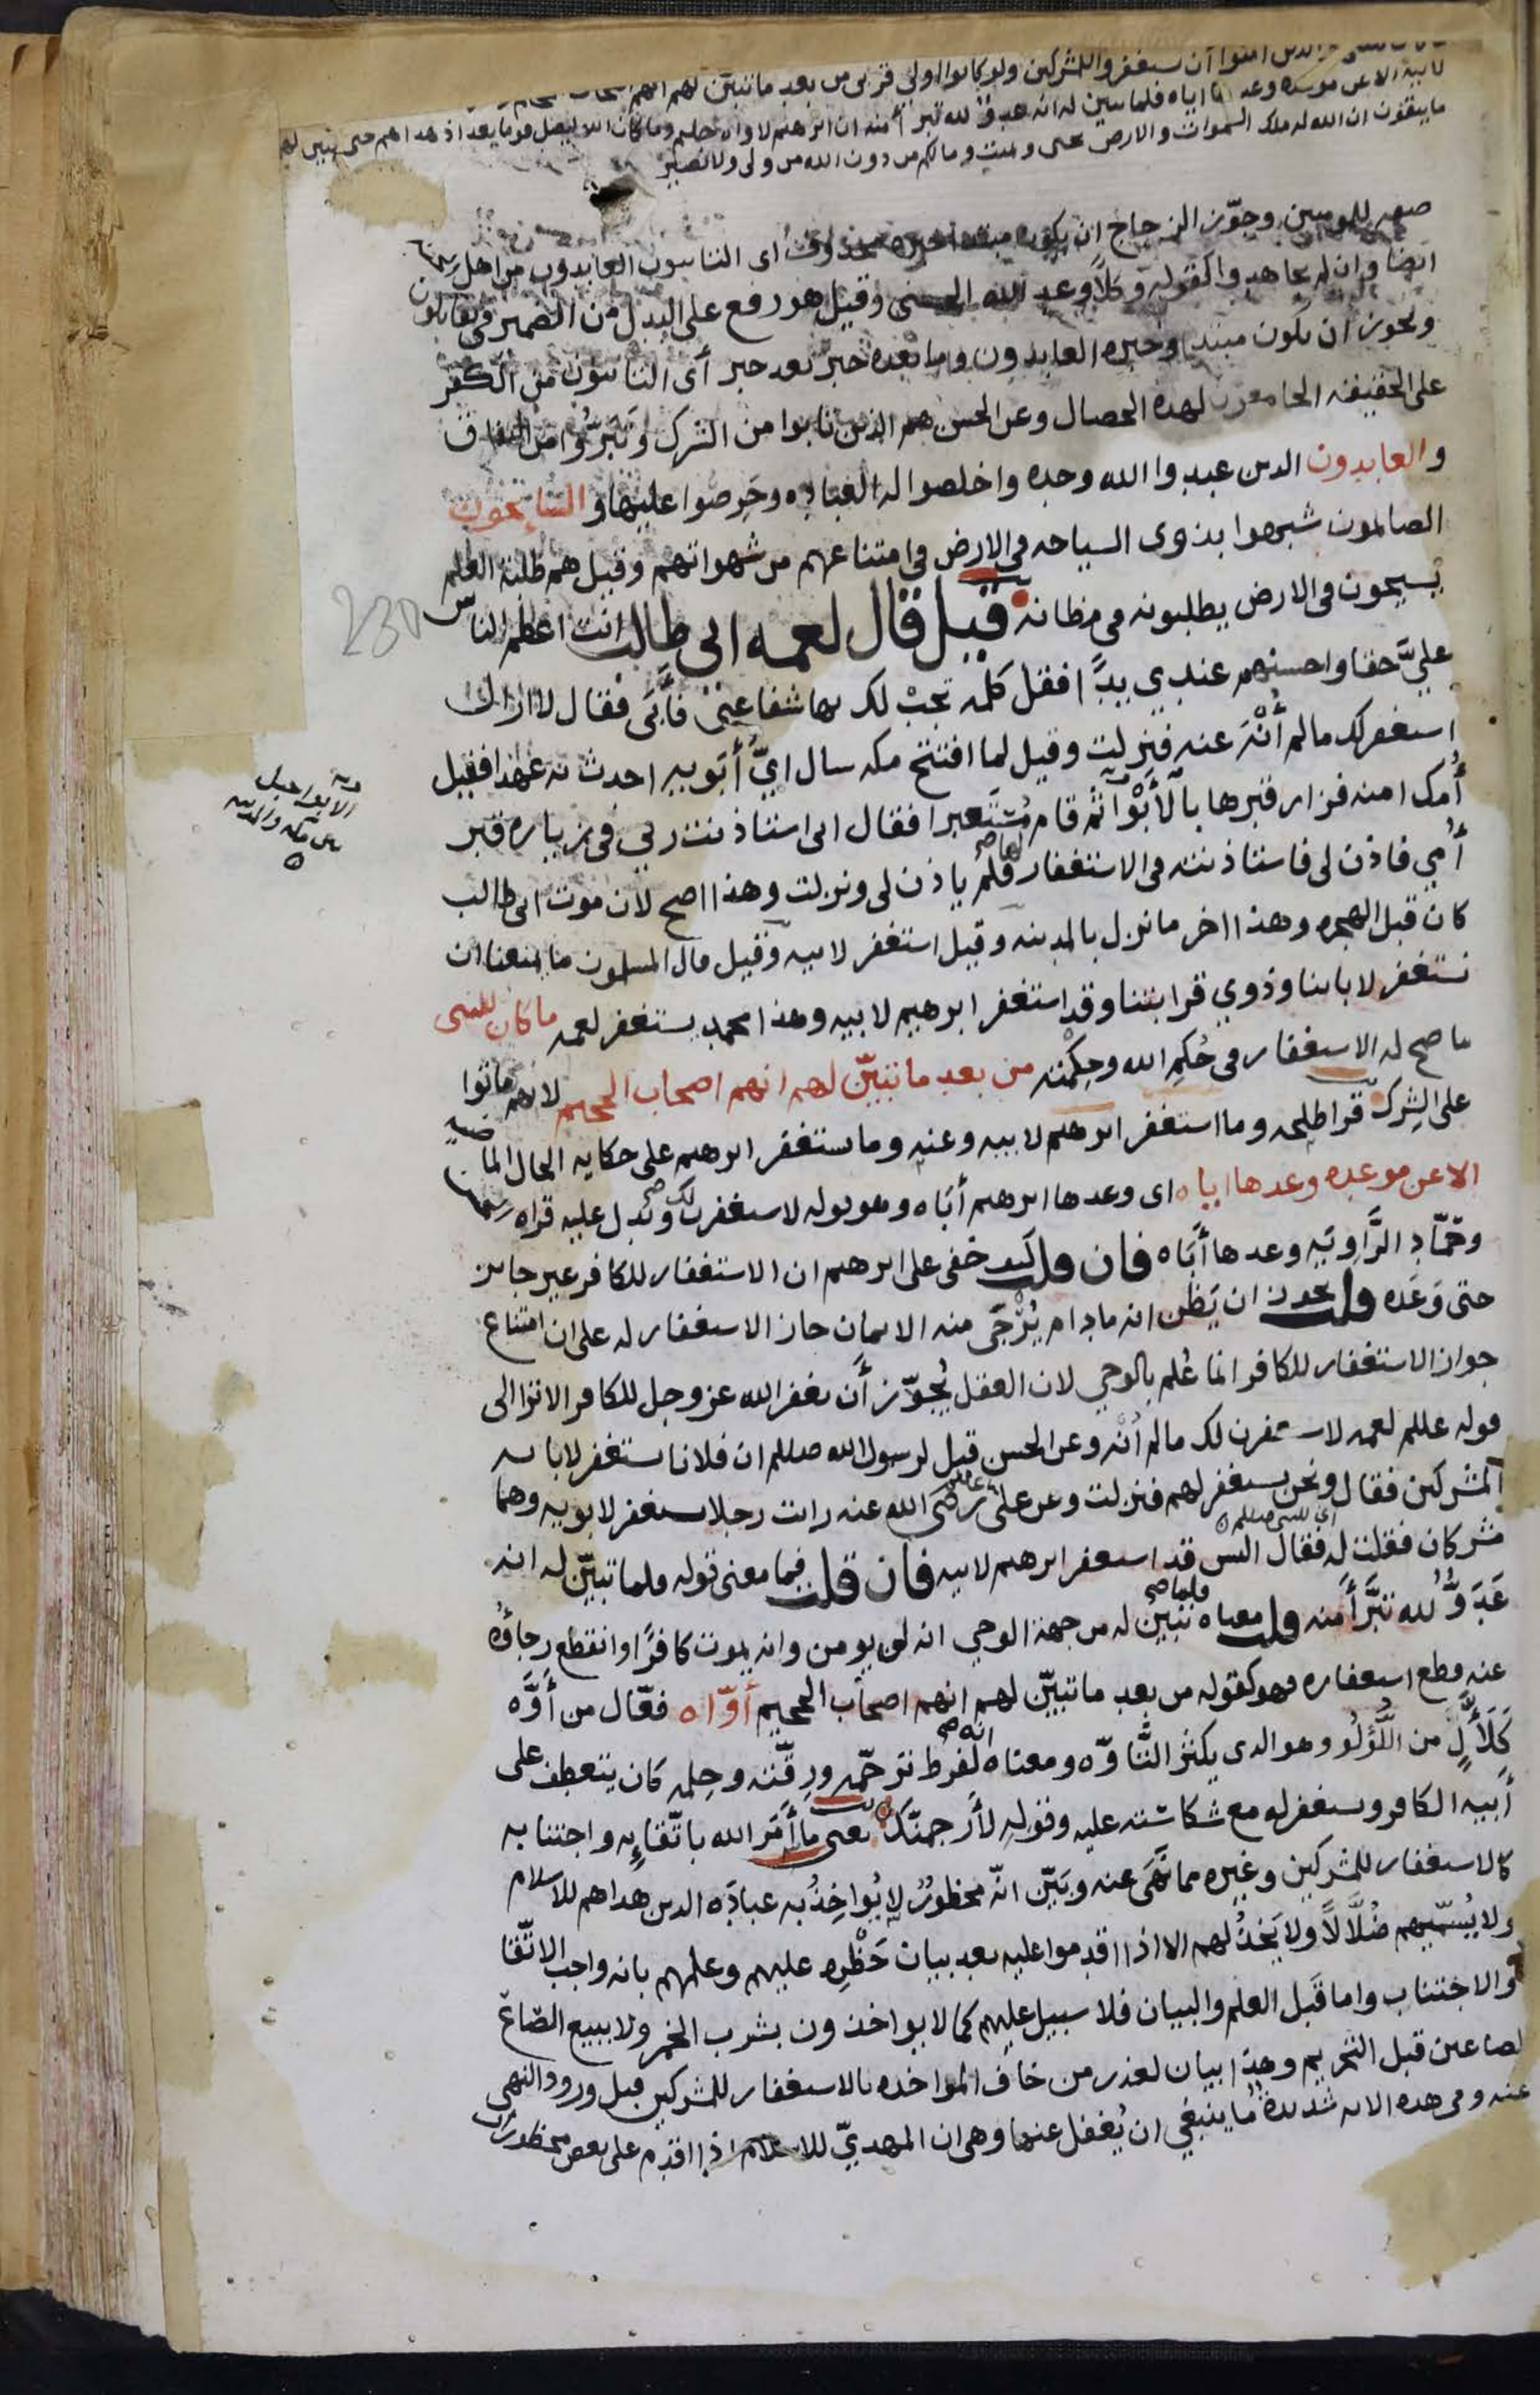 والذين امنوا ان يستغفروا للمشركين ولو كانوا اولى قربى من بعد ما تبين لهم انهم
لابيه الا عن موعدة وعدها اياه فلما تبين له انه عدو لله تبرأ منه ان ابرهيم لاواه حليم وما كان الله ليضل قوما بعد اذ هداهم حتى يبين لهم
ما يتقون ان الله له ملك السموات والارض يحيى ويميت وما لكم من دون الله من ولى ولا نصير
صفه للمومنين وجوّز الزجاج ان يكون مبتدا خبره محذوف اى التائبون العابدون من اهل
ايضا وان لم يجاهدوا كقوله وكلًّا وعد الله الحسنى وقيل هو رفع على البدل من الضمير فى يقاتلون
ويجوز ان يكون مبتدا وخبره العابدون وما بعده خبرٌ بعد خبر أى التائبون من الكفر
على الحقيقه الجامعون لهذه الخصال وعن الحسن هم الذين تابوا من الشرك وتبرّؤا من النفاق
والعابدون الذين عبدوا الله وحده واخلصوا له العباده وحَرِصُوا عليها والسائحون
الصائمون شبهوا بذوى السياحه فى الارض فى امتناعهم من شهواتهم وقيل هم طلبة العلم
يسيحون فى الارض يطلبونه فى مظانه قيل قال لعمه ابى طالب انت اعظم الناس
عليَّ حقا واحسنهم عندي يدًا فقل كلمه تجبْ لك بها شفاعتى فأبَى فقال لا ازال
استغفر لك ما لم أُنْهَ عنه فنزلت وقيل لما افتتح مكه سال ايّ أبَويه احدث به عهدا فقيل
أمك امنه فزار قبرها بالأبْوَآ ثم قام مُستَعبرا فقال انى استاذنت ربي فى زياره قبر
أُمي فاذن لى فاستاذنته فى الاستغفار لها فلم ياذن لى ونزلت وهذا اصح لان موت ابى طالب
كان قبل الهجره وهذا اخر ما نزل بالمدينه وقيل استغفر لابيه وقيل قال المسلمون ما يمنعنا ان
نستغفر لابائنا وذوي قرابتنا وقد استغفر ابرهيم لابيه وهذا محمد يستغفر لعمه ما كان للنبى
ما صح له الاستغفار فى حُكمِ الله وحِكْمته من بعد ما تبيّن لهم انهم اصحاب الجحيم لانهم ماتوا
على الشِرك قرا طلحه وما استغفر ابرهيم لابيه وعنه وما يستغفر ابرهيم على حكايه الحال الماضيه
الا عن موعده وعدها اياه اى وعدها ابرهيم أبَاه وهو قوله لاستغفرن لك ويدل عليه قراه
وحمّاد الرَّاوِيَه وعدها أبَاه فان قلت كيف خفى على ابرهيم ان الاستغفار للكافر غير جايز
حتى وَعَده قلت يجوز ان يَظن انه ما دام يُرْجَى منه الايمان جاز الاستغفار له على ان امتناع
جواز الاستغفار للكافر انما عُلم بالوحي لان العقل يُجوّز أن يغفر الله عز وجل للكافر الا ترا الى
قوله عللم لعمه لاستغفرن لك ما لم أُنْه وعن الحسن قيل لرسول الله صللم ان فلانا يستغفر لابائه
المشركين فقال ونحن نستغفر لهم فنزلت وعن على رضى الله عنه رايت رجلا يستغفر لابويه وهما
مشركان فقلت له فقال اليس قد استغفر ابرهيم لابيه فان قلت فما معنى قوله فلما تبيّن له انه
عَدَوٌّ لله تبَرَّأَ منه قلت معناه فلما تبين له من جهة الوحي انه لن يومن وانه يموت كافرًا وانقطع رجاؤه
عنه قطع استغفاره فهو كقوله من بعد ما تبيّن لهم انهم اصحاب الجحيم أوّاه فعّال من أوَّه
كَلَأَّلٍ من اللُّؤلُؤ وهو الذى يكثر التَّاوّه ومعناه انه لفرط ترحّمه ورِقّته وحِلمه كان يتعطف على
أبيه الكافر ويستغفر له مع شكاسته عليه وقوله لأرجمنّك يعنى ما أمَر الله باتّقائه واجتنابه
كالاستغفار للمشركين وغيره مما نَهَى عنه وبَيّن انّه محظورٌ لا يُواخِذُ به عبادَه الذين هداهم للاسلام
ولا يُسَمّيهم ضُلَّالًا ولا يَخذُلهم الا اذا اقدموا عليه بعد بيان حَظْرِه عليهم وعلمهم بانه واجب الاتّقا
والاجتناب واما قَبل العلم والبيان فلا سبيل عليهم كما لا يواخذون بشرب الخمر ولا ببيع الصّاع
بالصاعين قبل التحريم وهذا بيان لعذر من خاف المواخده بالاستغفار للمشركين قبل ورود النهى
عنه وفى هذه الايه شديدةٌ ما ينبغي ان يُغفل عنها وهى ان المهديّ للاسلام اذا اقدم على بعض محظورات
230